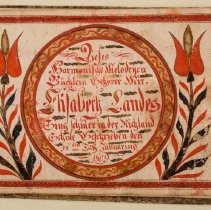 Dieses
Harmonische Melodeyen
Büchlein Gehöret Mir
Elisabeth Landes
Sing schüler in der Richland
Schule Geschrieben den
Januarius